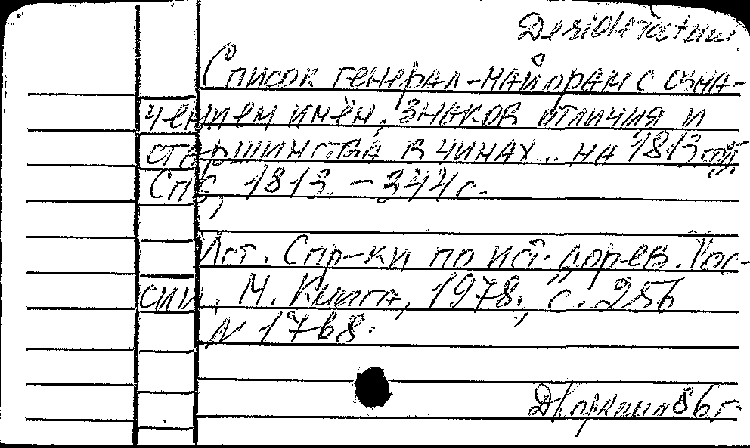 Desideratum
Список генерал-майорам с озна-
чением имён, знаков отличия и
старшинства в чинах.. на 1813 год.
Спб, 1813. – 344 с.
Ист. Спр-ки по ист. дорев. Рос-
сии. М. Книга, 1978., с. 256
N 1768.
86 г.